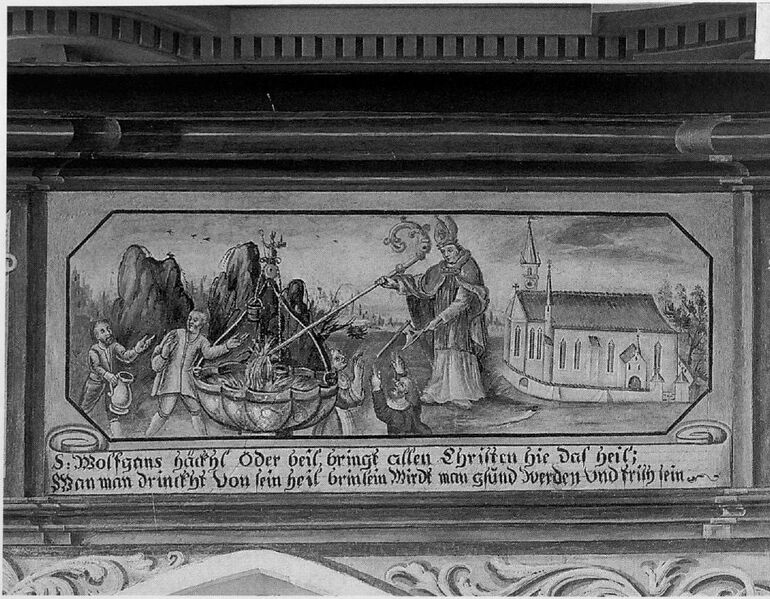 S: Wolfgans häckhl Oder beil, bringt allen Christen hie das heil;
Wan man drinckht Von sein heil brinlein Wirdt man gsund werden Vnd frisch sein